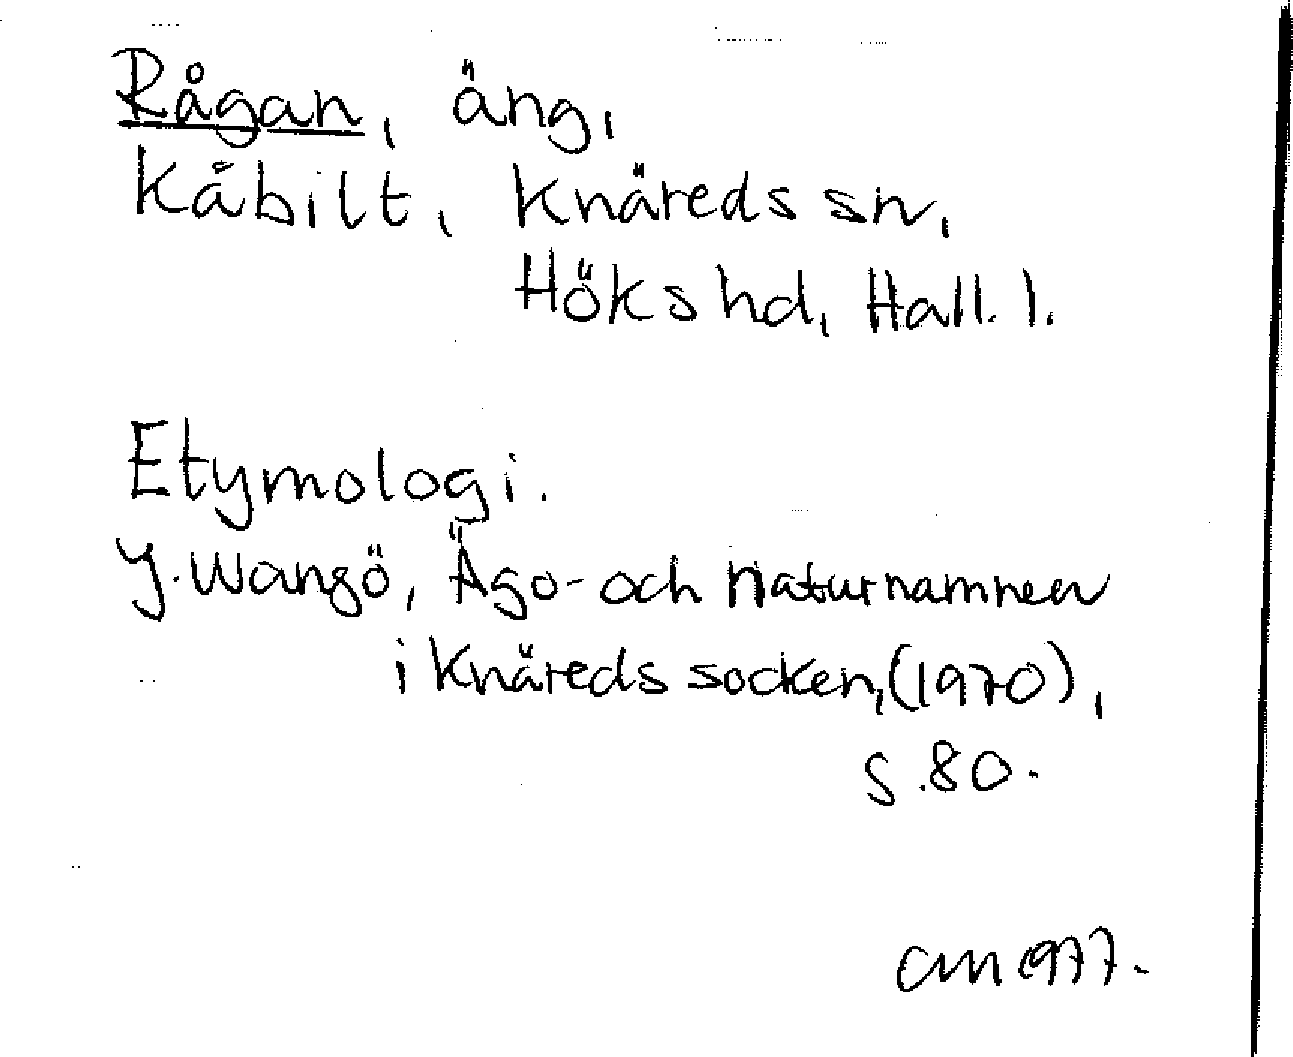 Rågan, äng,
Kåbilt, Knäreds sn,
Höks hd, Hall. l.
Etymologi.
J. Wangö, Ägo- och naturnamnen
i Knäreds socken, (1970),
s. 80.
CM 1977.